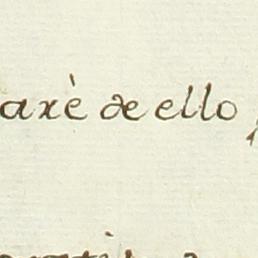 arè de ello